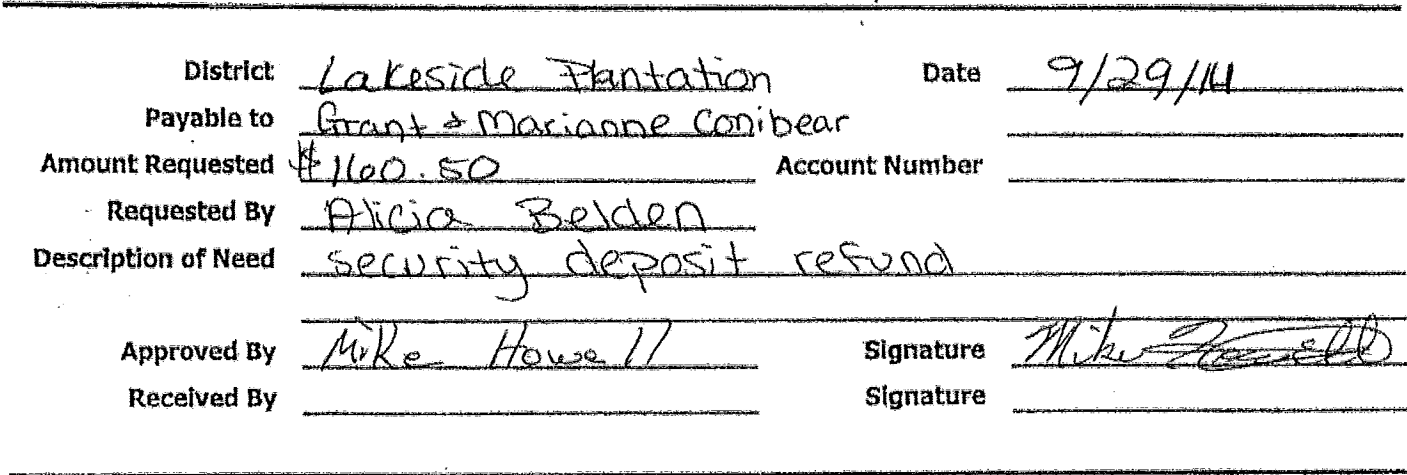 District Lakeside Plantation Date 9/29/14
Payable to Grant & Marianne Conibear
Amount Requested $160.50 Account Number
Requested By Alicia Belden
Description of Need security deposit refund
Approved By Mike Howell Signature Mike Howell
Received By Signature